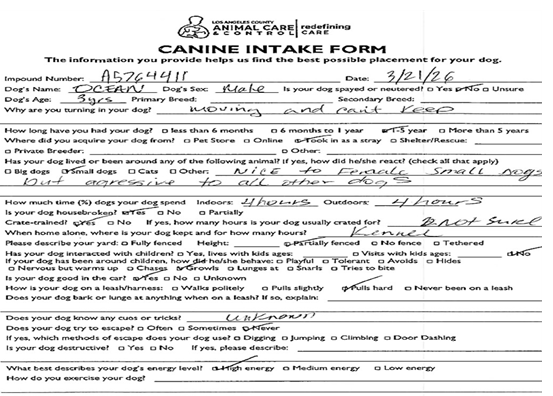 LOS ANGELES COUNTY
ANIMAL CARE & CONTROL
redefining CARE
CANINE INTAKE FORM
The information you provide helps us find the best possible placement for your dog.
Impound Number: A5764411 Date: 3/21/26
Dog's Name: OCEAN Dog's Sex: Male Is your dog spayed or neutered? □ Yes ☑ No □ Unsure
Dog's Age: 3yrs Primary Breed: Secondary Breed:
Why are you turning in your dog? moving and can't keep
How long have you had your dog? □ less than 6 months □ 6 months to 1 year ☑ 1-5 year □ More than 5 years
Where did you acquire your dog from? □ Pet Store □ Online ☑ Took in as a stray □ Shelter/Rescue:
□ Private Breeder: □ Other:
Has your dog lived or been around any of the following animal? If yes, how did he/she react? (check all that apply)
□ Big dogs ☑ Small dogs □ Cats □ Other: NICE to Female small dogs
but agressive to all other dogs
How much time (%) dogs your dog spend Indoors: 4 hours Outdoors: 4 hours
Is your dog housebroken? ☑ Yes □ No □ Partially
Crate-trained? ☑ Yes □ No If yes, how many hours is your dog usually crated for? not sure
When home alone, where is your dog kept and for how many hours? Kennel
Please describe your yard: □ Fully fenced Height: ☑ Partially fenced □ No fence □ Tethered
Has your dog interacted with children? □ Yes, lives with kids ages: □ Visits with kids ages: ☑ No
If your dog has been around children, how did he/she behave: □ Playful □ Tolerant □ Avoids □ Hides
□ Nervous but warms up □ Chases ☑ Growls □ Lunges at □ Snarls □ Tries to bite
Is your dog good in the car? ☑ Yes □ No □ Unknown
How is your dog on a leash/harness: □ Walks politely □ Pulls slightly ☑ Pulls hard □ Never been on a leash
Does your dog bark or lunge at anything when on a leash? If so, explain:
Does your dog know any cues or tricks? unknown
Does your dog try to escape? □ Often □ Sometimes ☑ Never
If yes, which methods of escape does your dog use? □ Digging □ Jumping □ Climbing □ Door Dashing
Is your dog destructive? □ Yes □ No If yes, please describe:
What best describes your dog's energy level? ☑ High energy □ Medium energy □ Low energy
How do you exercise your dog?